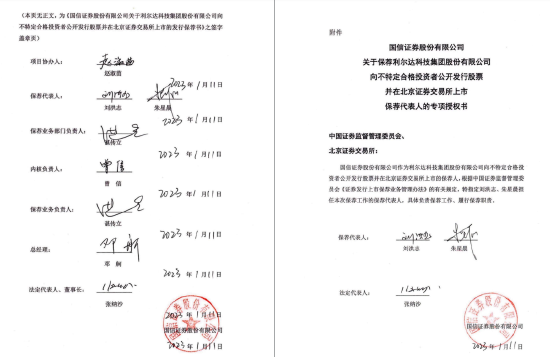 （本页无正文，为《国信证券股份有限公司关于利尔达科技集团股份有限公司向
不特定合格投资者公开发行股票并在北京证券交易所上市的发行保荐书》之签字
盖章页）
项目协办人：
赵淑苗
2023年1月11日
保荐代表人：
刘洪志 朱星晨
2023年1月11日
保荐业务部门负责人：
谌传立
2023年1月11日
内核负责人：
曾信
2023年1月11日
保荐业务负责人：
谌传立
2023年1月11日
总经理：
邓舸
2023年1月11日
法定代表人、董事长：
张纳沙
2023年1月11日
国信证券股份有限公司
2023年1月11日
附件
国信证券股份有限公司
关于保荐利尔达科技集团股份有限公司
向不特定合格投资者公开发行股票
并在北京证券交易所上市
保荐代表人的专项授权书
中国证券监督管理委员会、
北京证券交易所：
国信证券股份有限公司作为利尔达科技集团股份有限公司向不特定合格投
资者公开发行股票并在北京证券交易所上市的保荐人，根据中国证券监督管理委员
会《证券发行上市保荐业务管理办法》的有关规定，特指定刘洪志、朱星晨担
任本次保荐工作的保荐代表人，具体负责保荐工作、履行保荐职责。
保荐代表人：
刘洪志 朱星晨
法定代表人：
张纳沙
国信证券股份有限公司
2023年1月11日